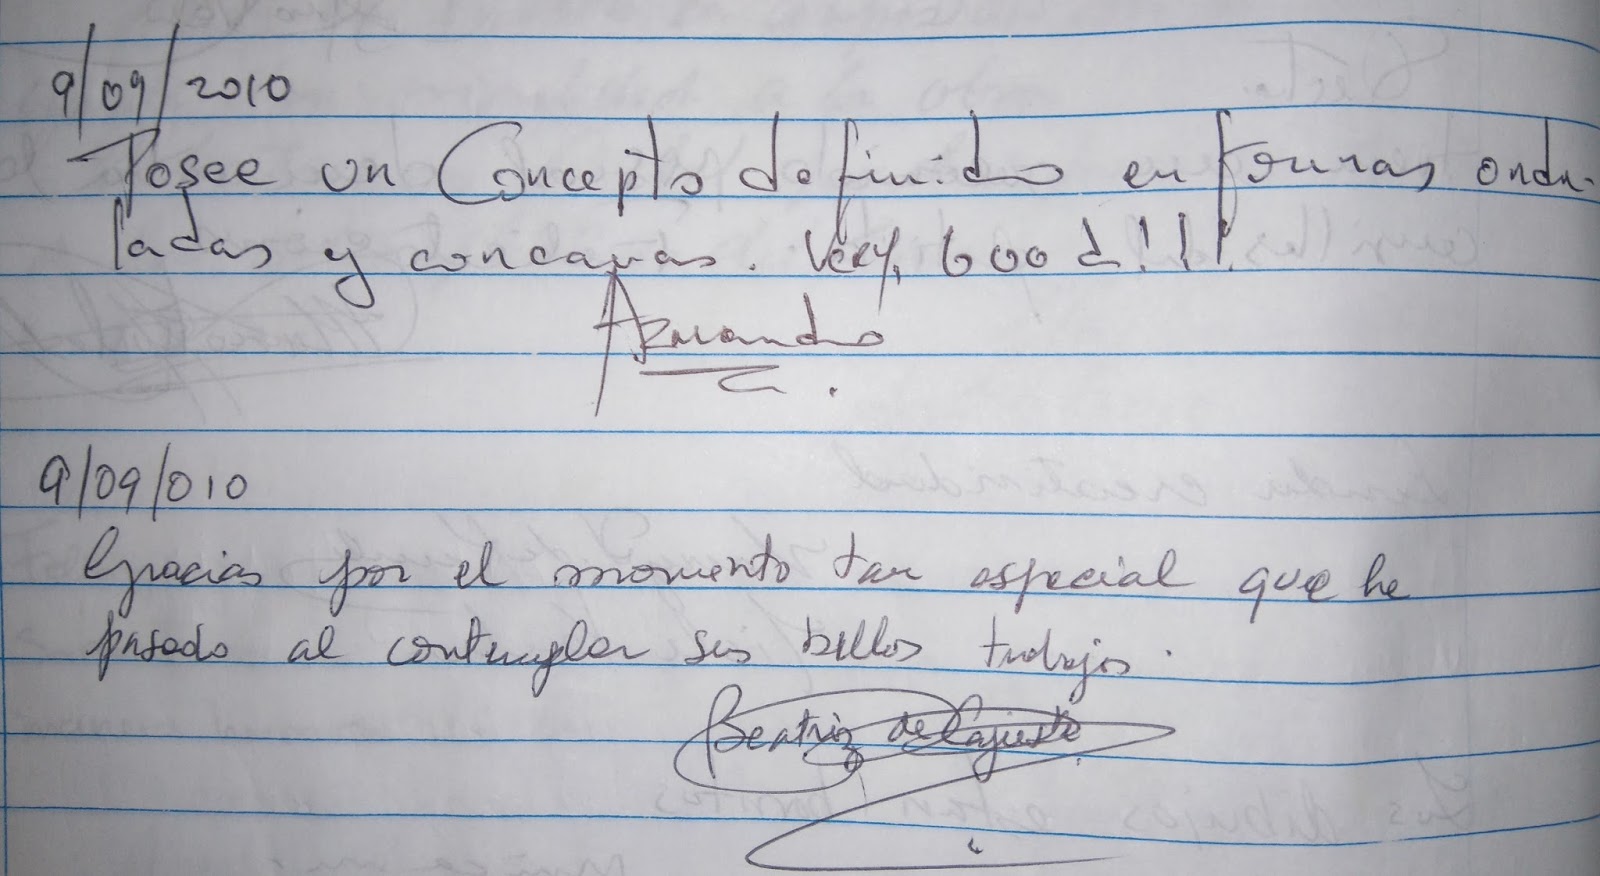 9/09/2010
Posee un Concepto definido en formas ondu-
ladas y concavas. Very, Good!!!
Armando
9/09/010
Gracias por el momento tan especial que he
pasado al contemplar sus bellos trabajos.
Beatriz de